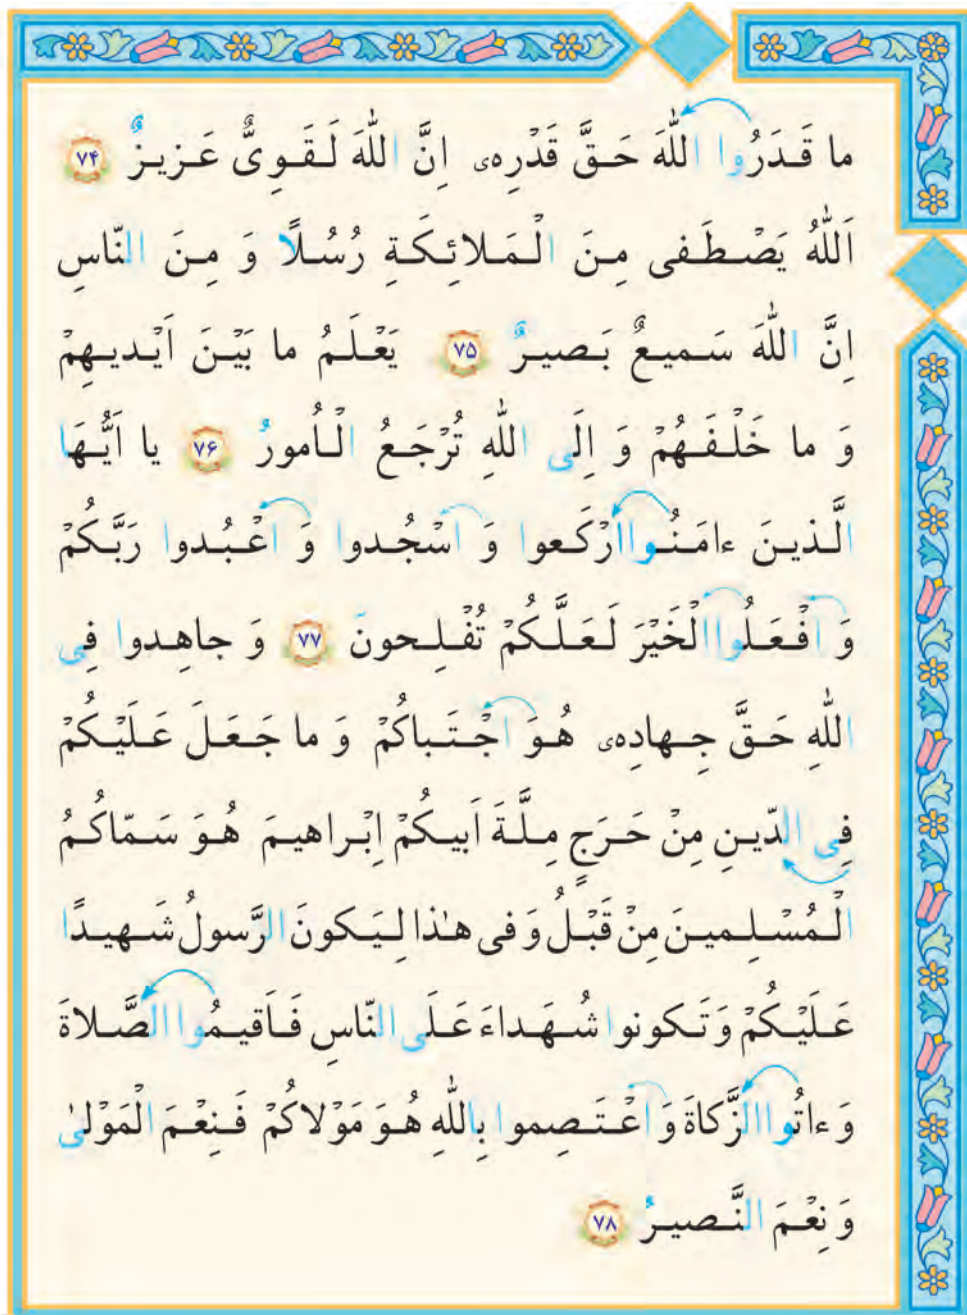 ما قَدَرُوا اللّٰهَ حَقَّ قَدْرِهٖی اِنَّ اللّٰهَ لَقَوِیٌّ عَزیزٌ ۷۴
اَللّٰهُ یَصْطَفی مِنَ الْمَلائِکَةِ رُسُلًا وَ مِنَ النّاسِ
اِنَّ اللّٰهَ سَمیعٌ بَصیرٌ ۷۵ یَعْلَمُ ما بَیْنَ اَیْدیهِمْ
وَ ما خَلْفَهُمْ وَ اِلَی اللّٰهِ تُرْجَعُ الْاُمورُ ۷۶ یا اَیُّهَا
الَّذینَ ءامَنُوا ارْکَعوا وَ اسْجُدوا وَ اعْبُدوا رَبَّکُمْ
وَ افْعَلُوا الْخَیْرَ لَعَلَّکُمْ تُفْلِحونَ ۷۷ وَ جاهِدوا فِی
اللّٰهِ حَقَّ جِهادِهٖی هُوَ اجْتَباکُمْ وَ ما جَعَلَ عَلَیْکُمْ
فِی الدّینِ مِنْ حَرَجٍ مِلَّةَ اَبیکُمْ اِبْراهیمَ هُوَ سَمّاکُمُ
الْمُسْلِمینَ مِنْ قَبْلُ وَ فی هٰذا لِیَکونَ الرَّسولُ شَهیدًا
عَلَیْکُمْ وَ تَکونوا شُهَداءَ عَلَی النّاسِ فَاَقیمُوا الصَّلاةَ
وَ ءاتُوا الزَّکاةَ وَ اعْتَصِموا بِاللّٰهِ هُوَ مَوْلاکُمْ فَنِعْمَ الْمَوْلیٰ
وَ نِعْمَ النَّصیرُ ۷۸